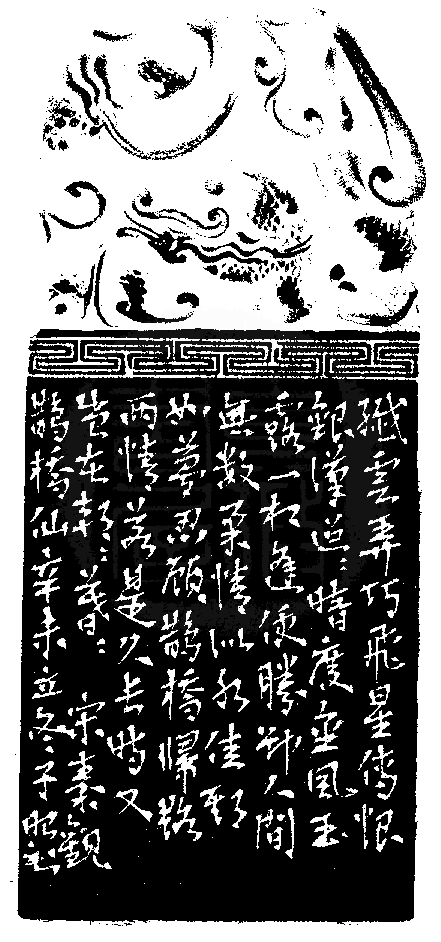 纖雲弄巧飛星傳恨
銀漢迢〻暗度金風玉
露一相逢便勝卻人間
無數柔情似水佳期
如夢忍顧鵲橋歸路
兩情若是久長時又
豈在朝〻暮〻 宋秦觀
鵲橋仙辛未立冬子